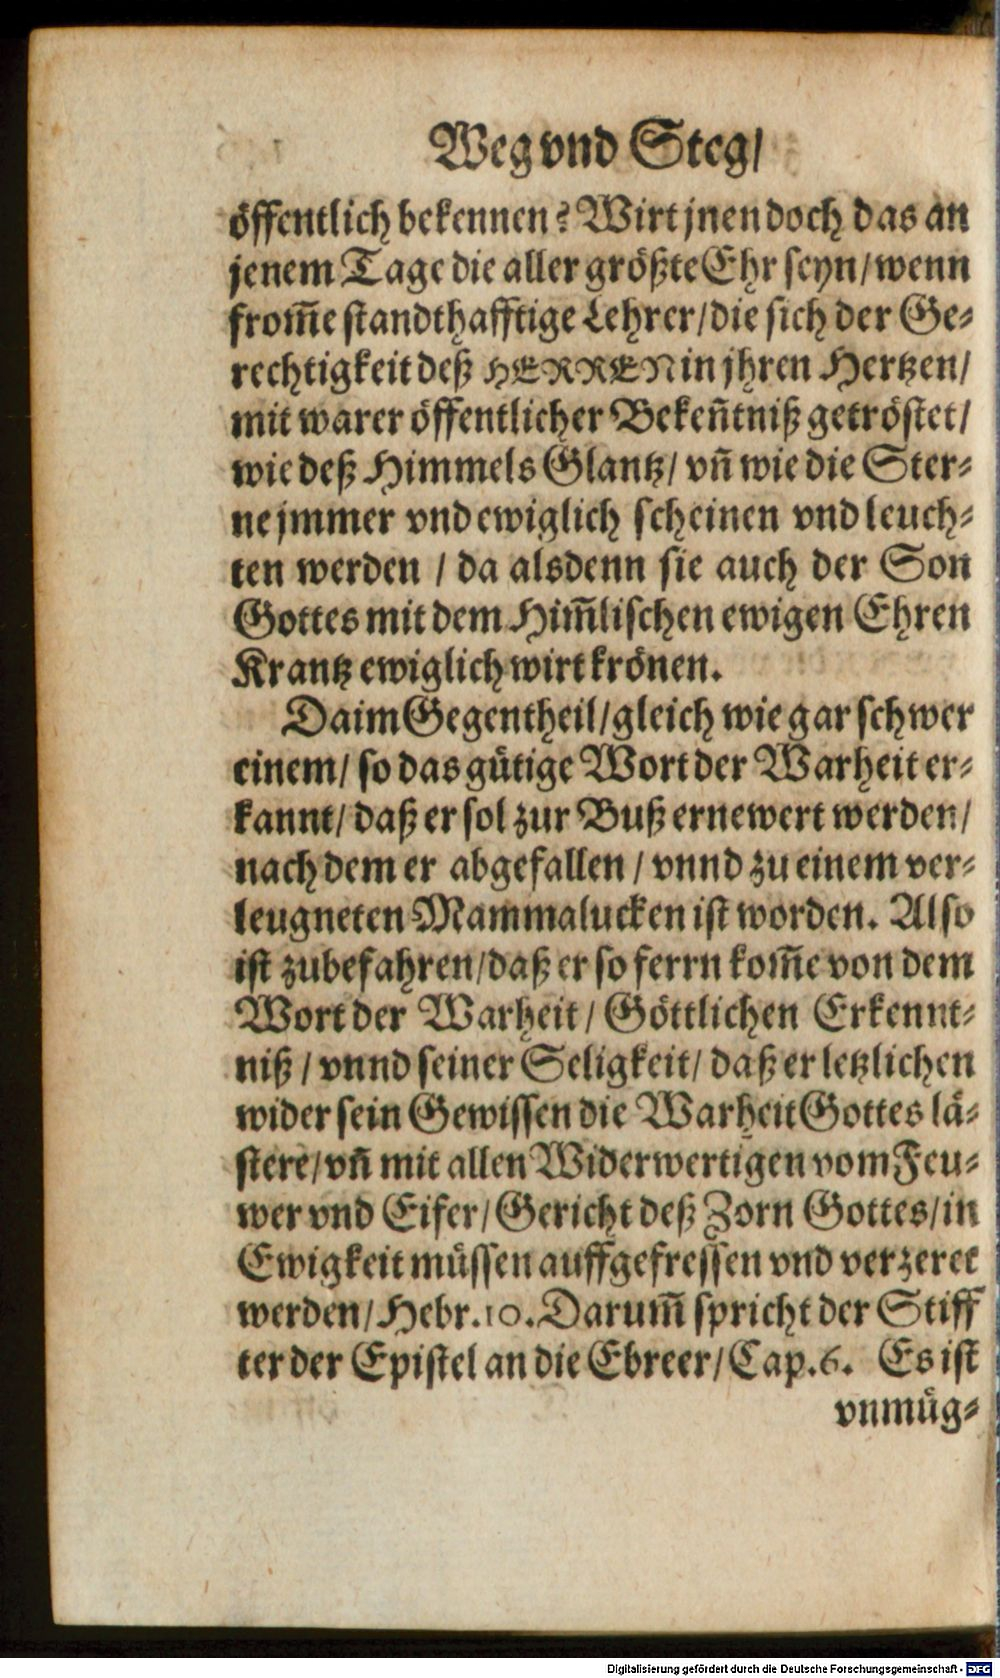 Weg vnd Steg/
öffentlich bekennen? Wirt jnen doch das an
jenem Tage die aller größte Ehr seyn/ wenn
from̃e standthafftige Lehrer/ die sich der Ge⸗
rechtigkeit deß HERREN in jhren Hertzen/
mit warer öffentlicher Bekeñtniß getröstet/
wie deß Himmels Glantz/ vñ wie die Ster⸗
ne jmmer vnd ewiglich scheinen vnd leuch⸗
ten werden / da alsdenn sie auch der Son
Gottes mit dem Him̃lischen ewigen Ehren
Krantz ewiglich wirt krönen.
Da im Gegentheil/ gleich wie gar schwer
einem/ so das gütige Wort der Warheit er⸗
kannt/ daß er sol zur Buß ernewert werden/
nach dem er abgefallen / vnnd zu einem ver⸗
leugneten Mammalucken ist worden. Also
ist zubefahren/ daß er so ferrn kom̃e von dem
Wort der Warheit / Göttlichen Erkennt⸗
niß / vnnd seiner Seligkeit/ daß er letzlichen
wider sein Gewissen die Warheit Gottes lä⸗
stere/ vñ mit allen Widerwertigen vom Feu⸗
wer vnd Eifer/ Gericht deß Zorn Gottes/ in
Ewigkeit müssen auffgefressen vnd verzeret
werden/ Hebr. 10. Darum̃ spricht der Stiff
ter der Epistel an die Ebreer/ Cap. 6. Es ist
vnmüg⸗
Digitalisierung gefördert durch die Deutsche Forschungsgemeinschaft - DFG